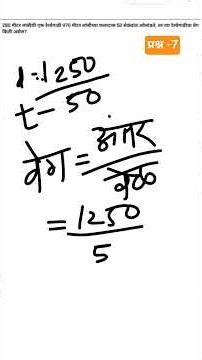 280 मीटर लांबीची एक रेल्वेगाडी 970 मीटर लांबीच्या फलाटास 50 सेकंदात ओलांडते, तर त्या रेल्वेगाडीचा वेग
किती असेल?
प्रश्न -7
1250
t - 50
वेग = अंतर
वेळ
= 1250
5